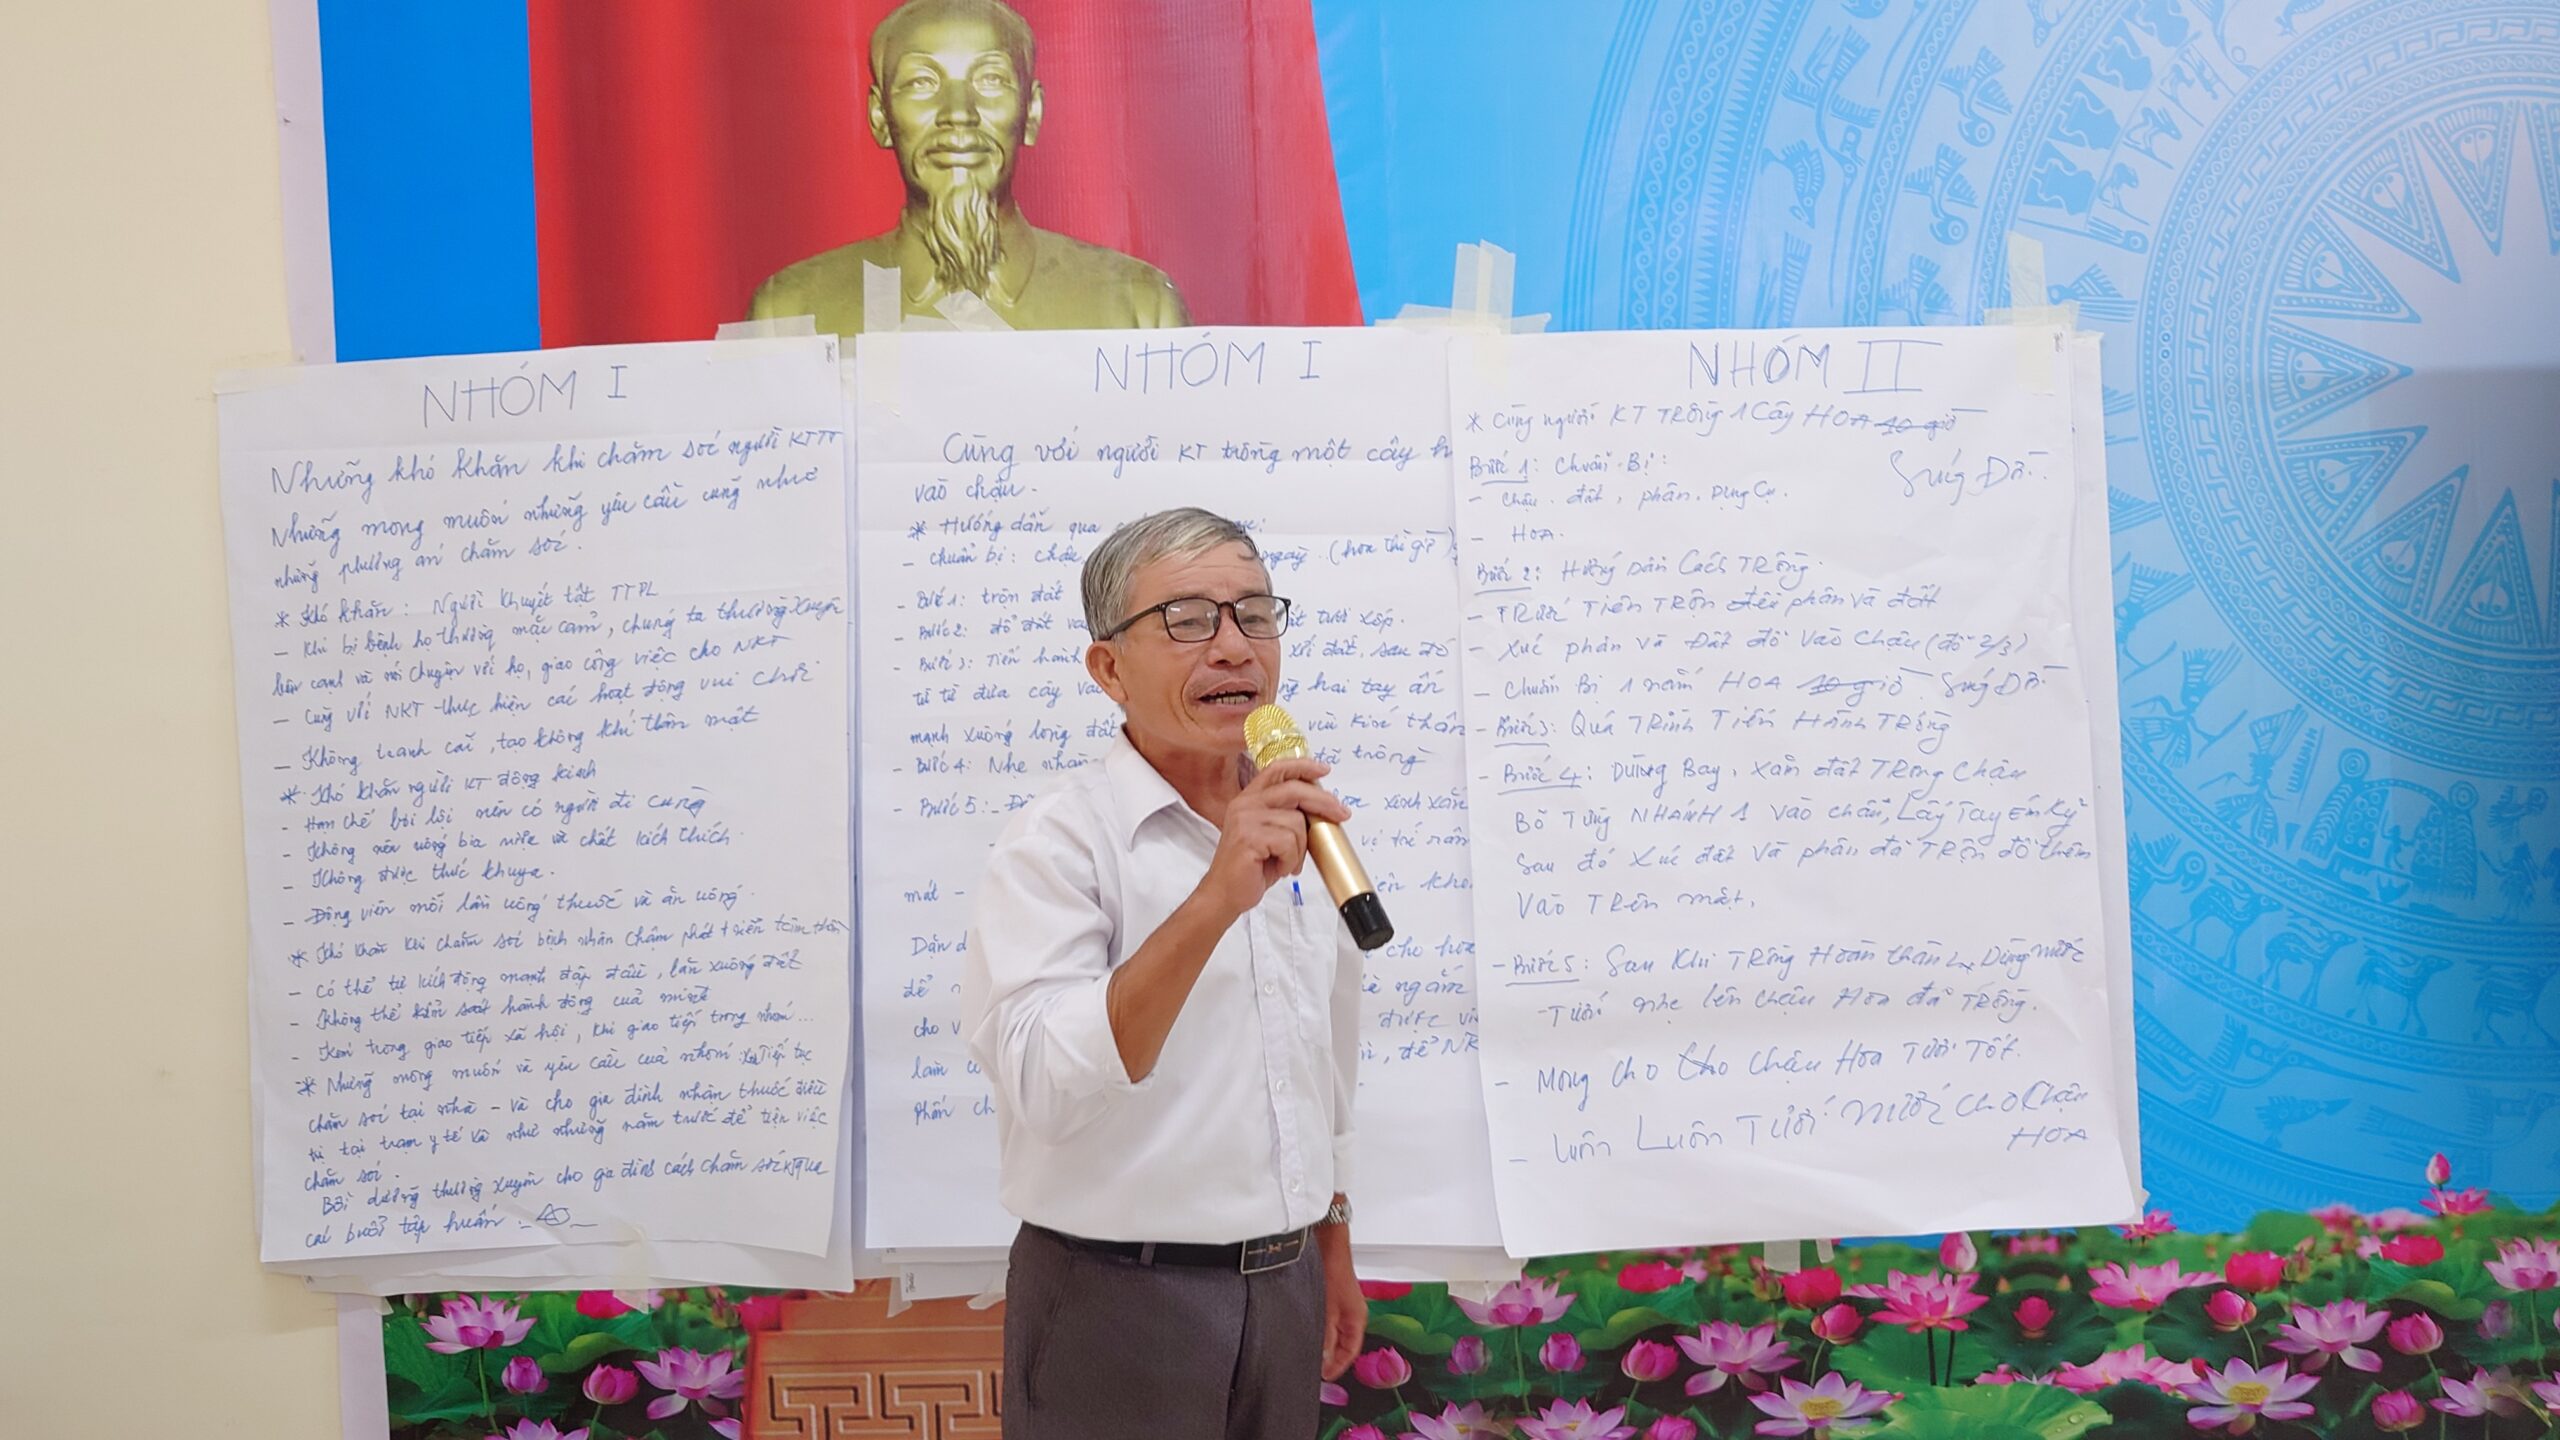 NHÓM I
Những khó khăn khi chăm sóc người KTTT
Những mong muốn những yêu cầu cũng như
những phương án chăm sóc.
* Khó khăn: Người khuyết tật TTPL
- Khi bị bệnh họ thường mặc cảm, chúng ta thường xuyên
bên cạnh và nói chuyện với họ, giao công việc cho NKT
- Cùng với NKT thực hiện các hoạt động vui chơi
- Không tranh cãi, tạo không khí thân mật
* Khó khăn người KT động kinh
- Hạn chế bơi lội nên có người đi cùng
- Không nên uống bia rượu và chất kích thích.
- Không được thức khuya.
- Động viên mỗi lần uống thuốc và ăn uống.
* Khó khăn khi chăm sóc bệnh nhân chậm phát triển tâm thần
- Có thể tự kích động mạnh đập đầu, lăn xuống đất
- Không thể kiểm soát hành động của mình
- Kém trong giao tiếp xã hội, khi giao tiếp trong nhóm...
* Những mong muốn và yêu cầu của nhóm: Tiếp tục
chăm sóc tại nhà - và cho gia đình nhận thuốc điều
trị tại trạm y tế xã như những năm trước để tiện việc
chăm sóc.
Bồi dưỡng thường xuyên cho gia đình cách chăm sóc qua
các buổi tập huấn.
NHÓM I
Cùng với người KT trồng một cây h
vào chậu.
* Hướng dẫn qua
- chuẩn bị: chậu (hoa thì giờ)
- Bước 1: trộn đất
- Bước 2: đổ đất và tươi xốp.
- Bước 3: Tiến hành xới đất, sau đó
từ từ đưa cây và hai tay ấn
mạnh xuống lòng đất thân
- Bước 4: Nhẹ nhàn đã trồng
- Bước 5: xinh xắn
vị trí râm
mát -
Dặn d cho hoa
để ngắm
cho v được
làm để
Phấn ch
NHÓM II
* Cùng người KT Trồng 1 Cây HOA 10 giờ
Sứng Đỏ.
Bước 1: Chuẩn Bị:
- Chậu. đất, phân. Dụng Cụ.
- HOA.
Bước 2: Hướng Dẫn Cách Trồng.
- TRước Tiên Trộn đều phân và đất
- Xúc phân và Đất đổ vào chậu (đổ 2/3)
- Chuẩn Bị 1 nắm HOA 10 giờ Sứng Đỏ
- Bước 3: Quá Trình Tiến Hành Trồng
- Bước 4: Dùng Bay, xắn đất Trong Chậu
Bỏ Từng NHÁNH 1 vào chậu, Lấy Tay ém Kỷ
sau đó xúc đất và phân đã Trộn đổ thêm
Vào Trên mặt.
- Bước 5: Sau Khi Trồng Hoàn thành Dùng nước
- Tưới nhẹ lên chậu Hoa đã Trồng.
- Mong cho Cho chậu Hoa Tươi Tốt.
- luôn Luôn Tưới nước cho Chậu
HOA